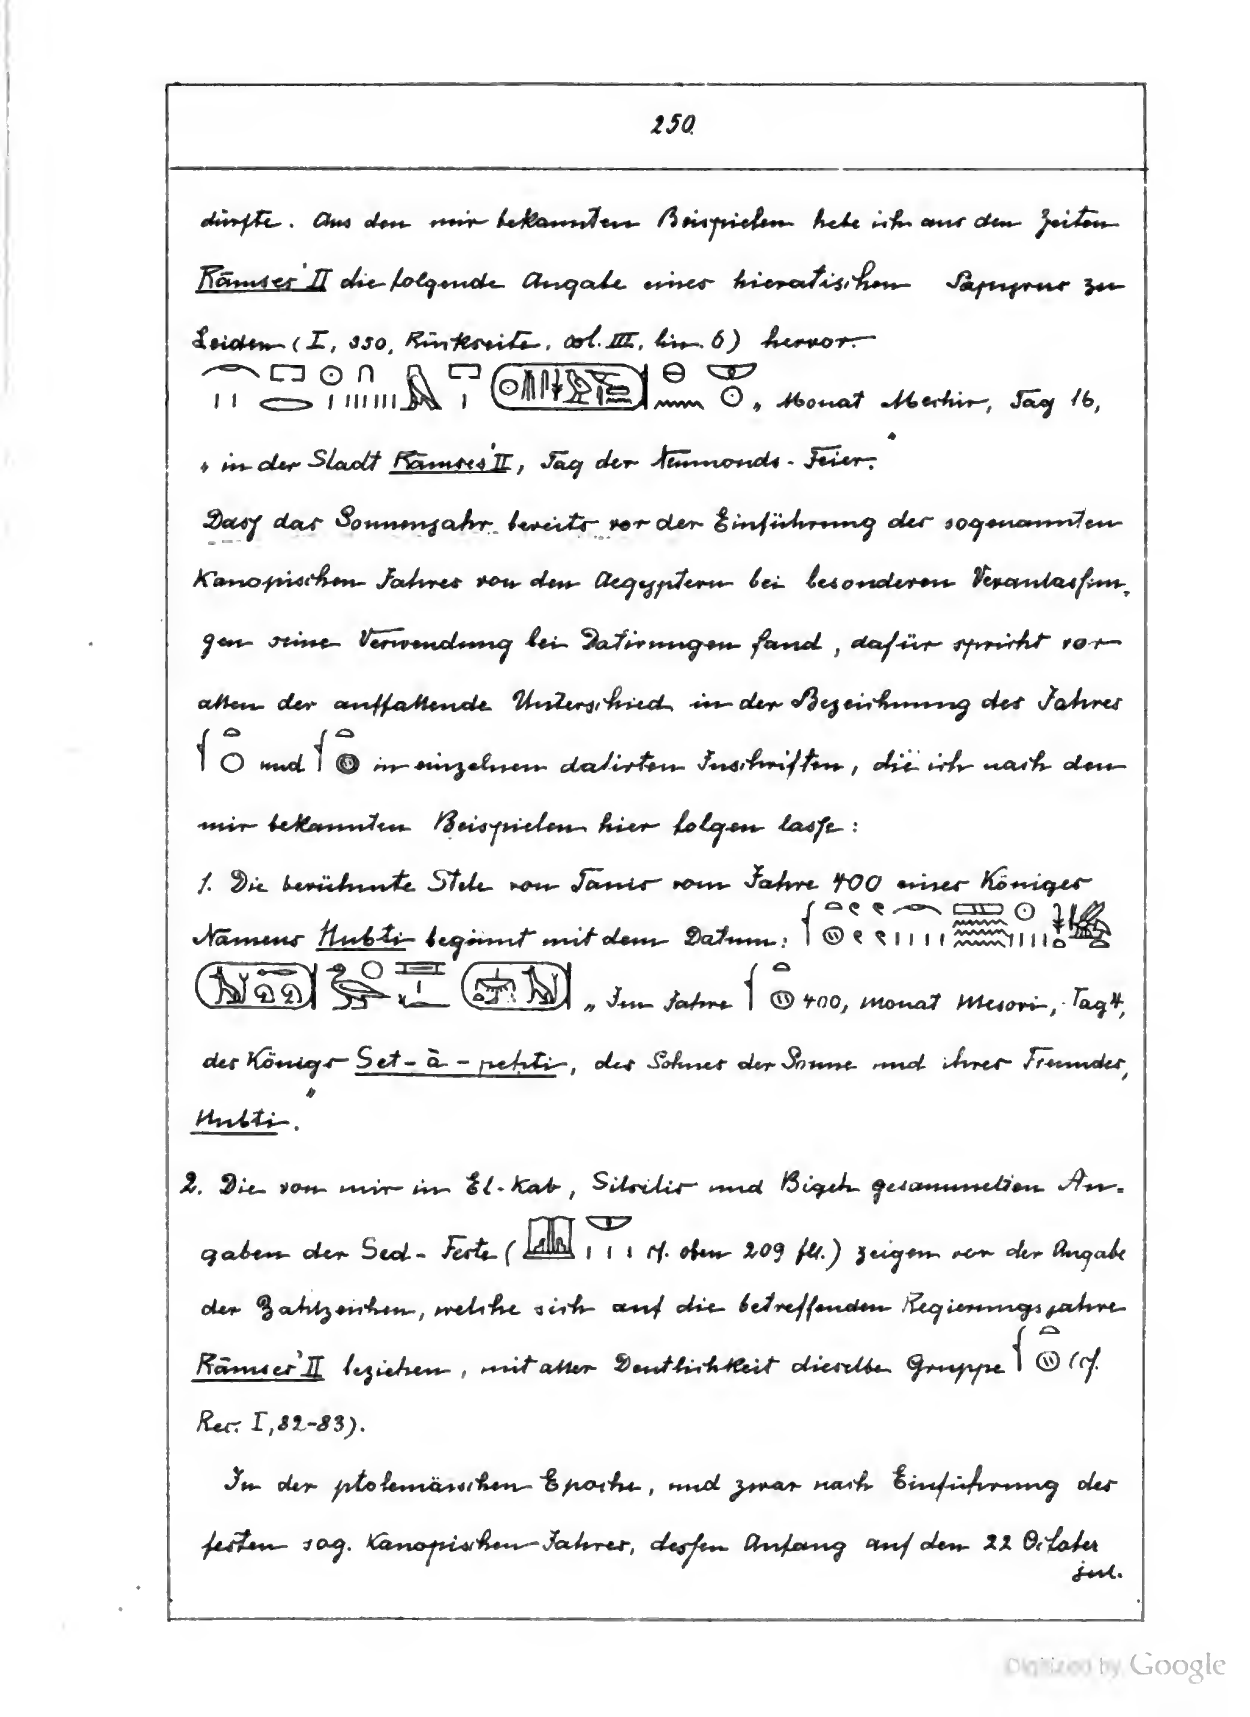 250.
dürfte. Aus den mir bekannten Beispielen hebe ich aus den Zeiten
Rāmses' II die folgende Angabe eines hieratischen Papyrus zu
Leiden (I, 350, Rückseite, col. III, lin. 6) hervor:
„Monat Mechir, Tag 16,
„in der Stadt Rāmses' II, Tag der Neumonds-Feier."
Dass das Sonnenjahr bereits vor der Einführung des sogenannten
Kanopischen Jahres von den Aegyptern bei besonderen Veranlassun-
gen seine Verwendung bei Datirungen fand, dafür spricht vor
allem der auffallende Unterschied in der Bezeichnung des Jahres
und in einzelnen datirten Inschriften, die ich nach den
mir bekannten Beispielen hier folgen lasse:
1. Die berühmte Stele von Tanis vom Jahre 400 eines Königes
Namens Nubti beginnt mit dem Datum:
„Im Jahre 400, Monat Mesori, Tag 4,
des Königs Set-ȧ-peḥti, des Sohnes der Sonne und ihres Freundes,
Nubti."
2. Die von mir in El-Kab, Silsilis und Bigeh gesammelten An-
gaben der Sed-Feste ( cf. oben 209 fll.) zeigen vor der Angabe
der Zahlzeichen, welche sich auf die betreffenden Regierungsjahre
Rāmses' II beziehen, mit aller Deutlichkeit dieselbe Gruppe (cf.
Rec. I, 82-83).
In der ptolemäischen Epoche, und zwar nach Einführung des
festen sog. Kanopischen Jahres, dessen Anfang auf den 22 October
jul.
Digitized by Google